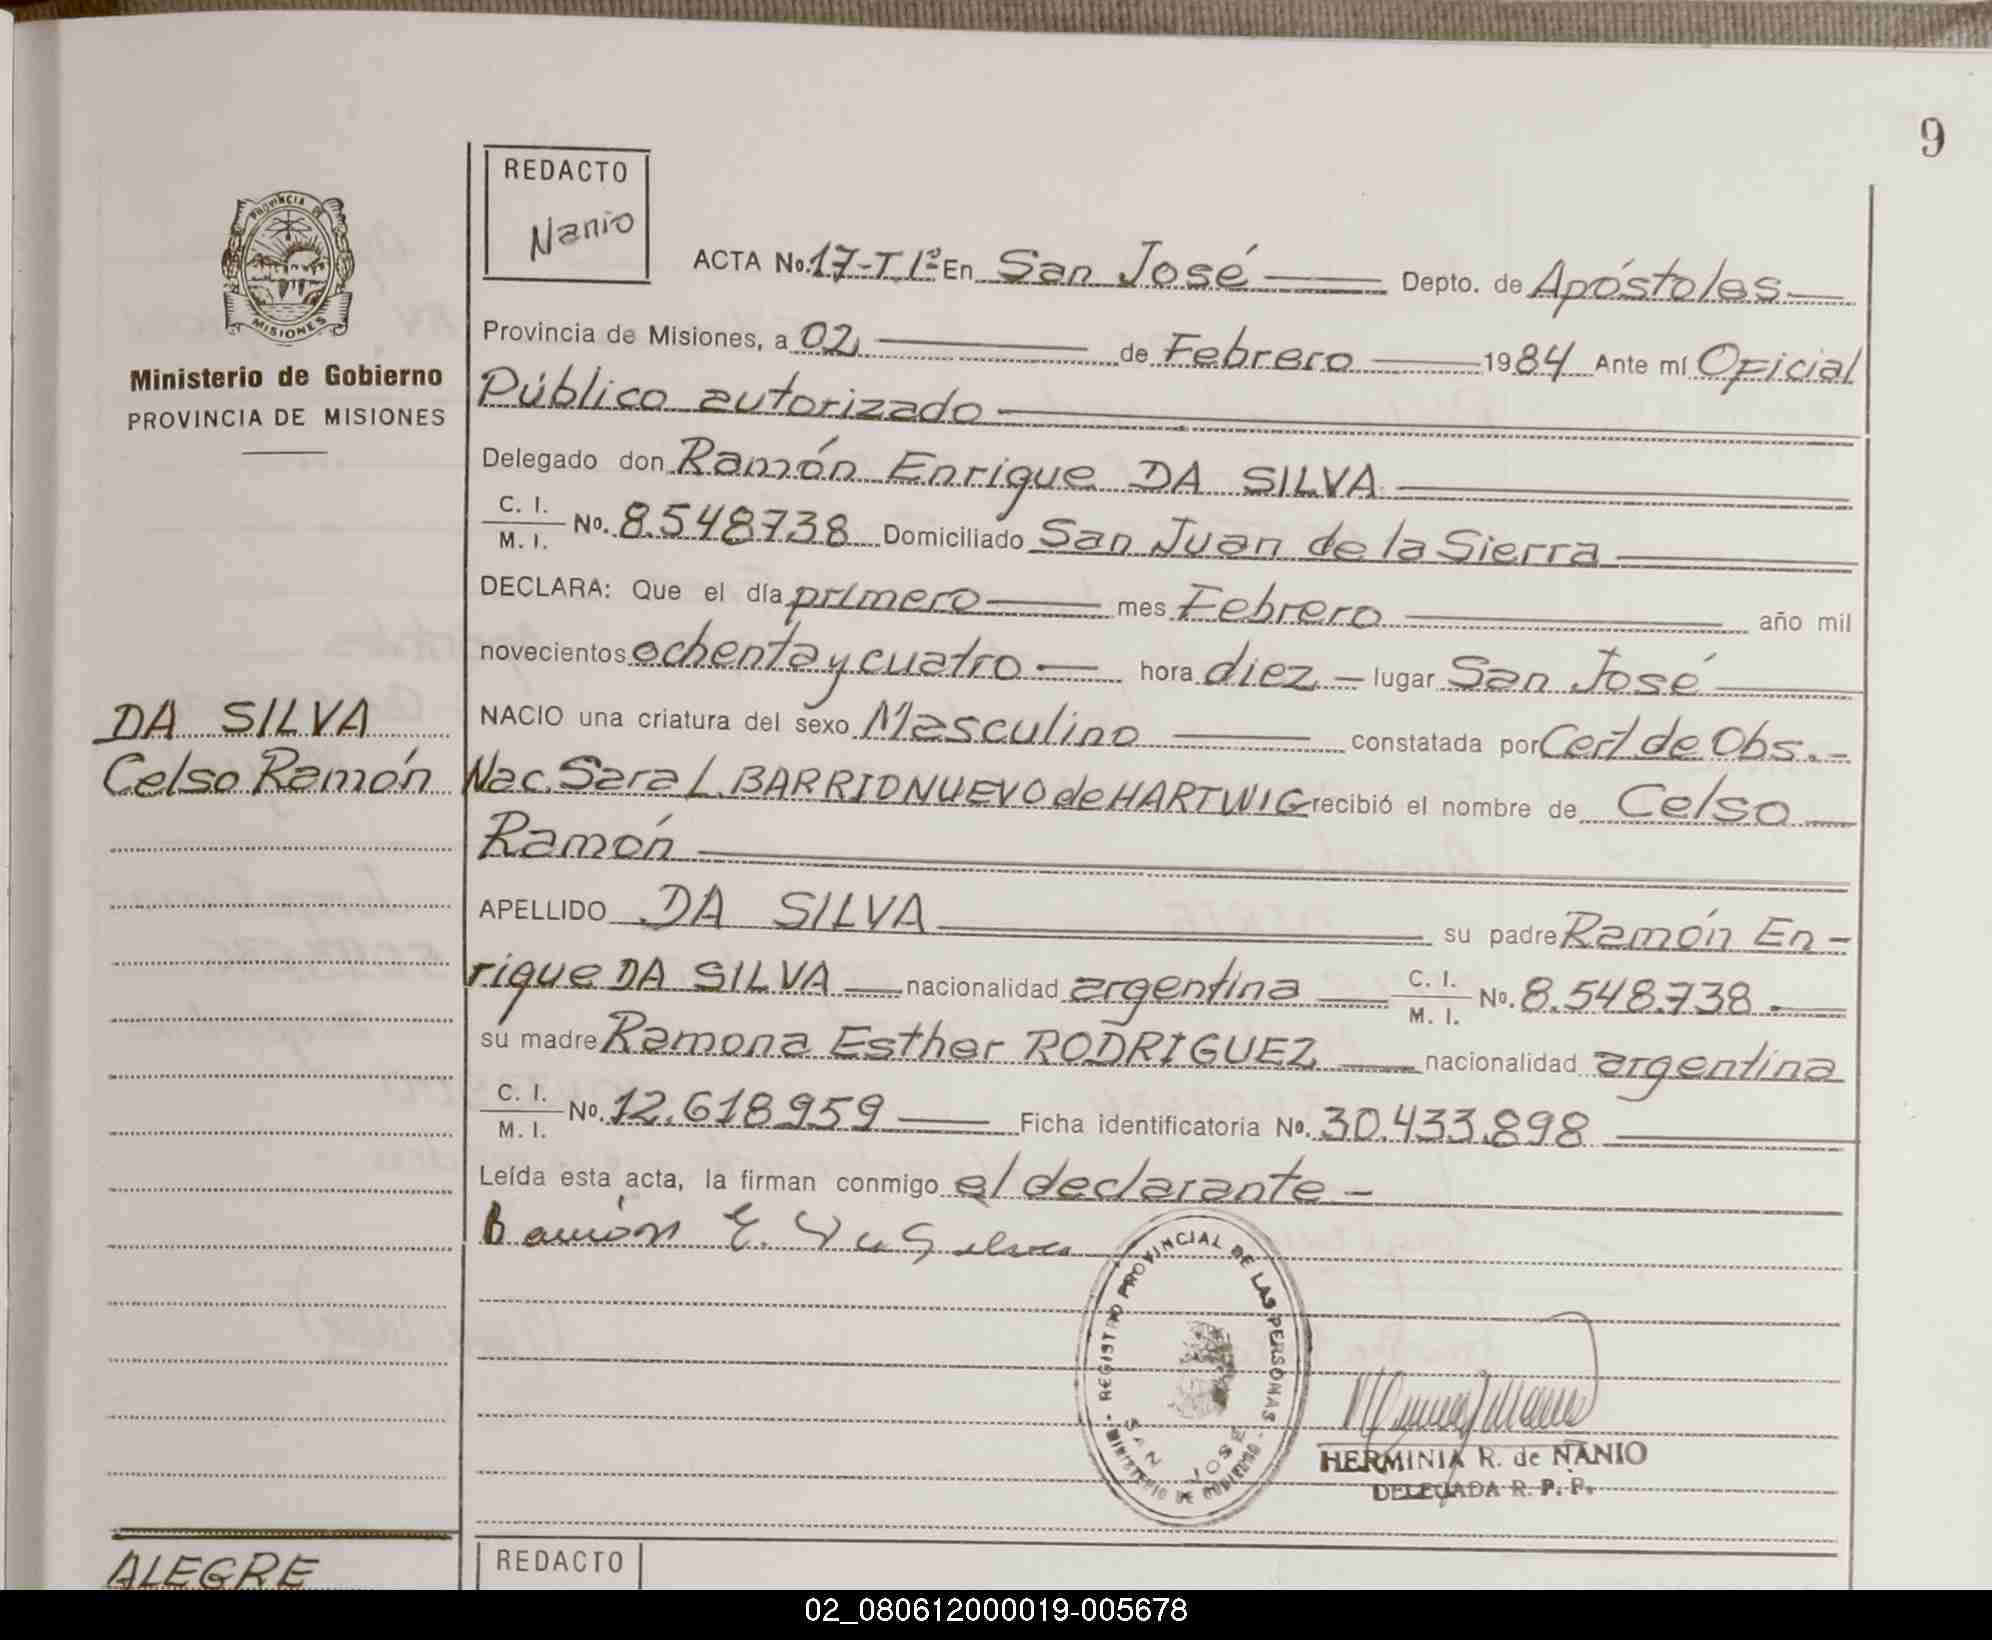 9
REDACTO
Nanio
PROVINCIA DE
MISIONES
Ministerio de Gobierno
PROVINCIA DE MISIONES
ACTA No. 17-T 1º En San José Depto. de Apóstoles
Provincia de Misiones, a 02 de Febrero 1984 Ante mí Oficial
Público autorizado
Delegado don Ramón Enrique DA SILVA
C. I. / M. I. No. 8.548738 Domiciliado San Juan de la Sierra
DECLARA: Que el día primero mes Febrero año mil
novecientos ochenta y cuatro hora diez lugar San José
NACIO una criatura del sexo Masculino constatada por Cert de Obs.-
DA SILVA
Celso Ramón
Nac. Sara L. BARRIONUEVO de HARTWIG recibió el nombre de Celso
Ramón
APELLIDO DA SILVA su padre Ramón En-
rique DA SILVA nacionalidad argentina C. I. / M. I. No. 8.548.738.
su madre Ramona Esther RODRIGUEZ nacionalidad argentina
C. I. / M. I. No. 12.618959 Ficha identificatoria No. 30.433.898
Leída esta acta, la firman conmigo el declarante -
Ramón E. Da Silva
REGISTRO PROVINCIAL DE LAS PERSONAS
SAN JOSE
MINISTERIO DE GOBIERNO
HERMINIA R. de NANIO
DELEGADA R. P. P.
ALEGRE
REDACTO
02_080612000019-005678